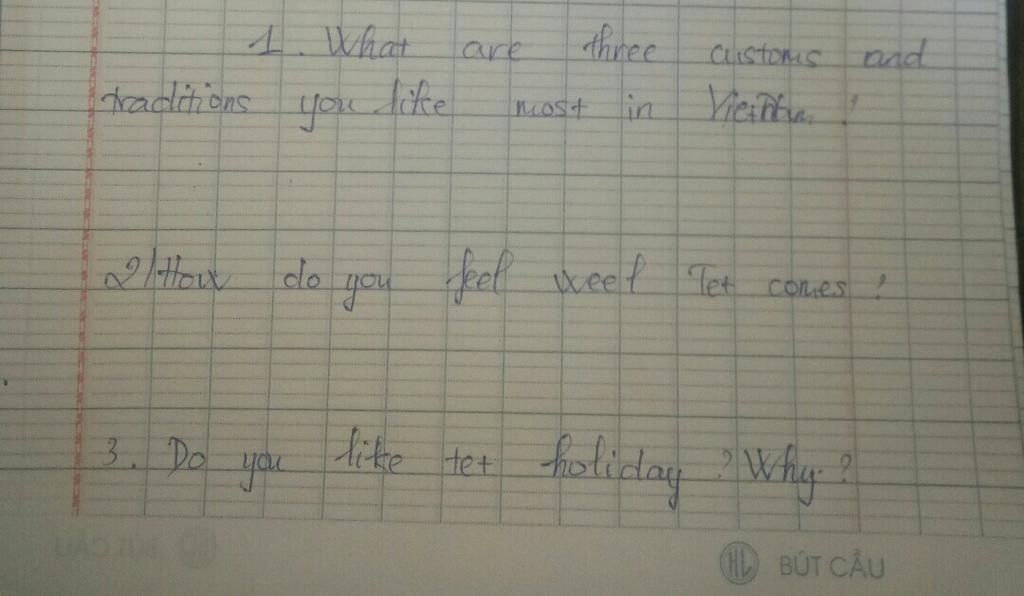 1. What are three customs and
traditions you like most in VietNam?
2/How do you feel weel Tet comes?
3. Do you like tet holiday? Why?
HL BÚT CẦU